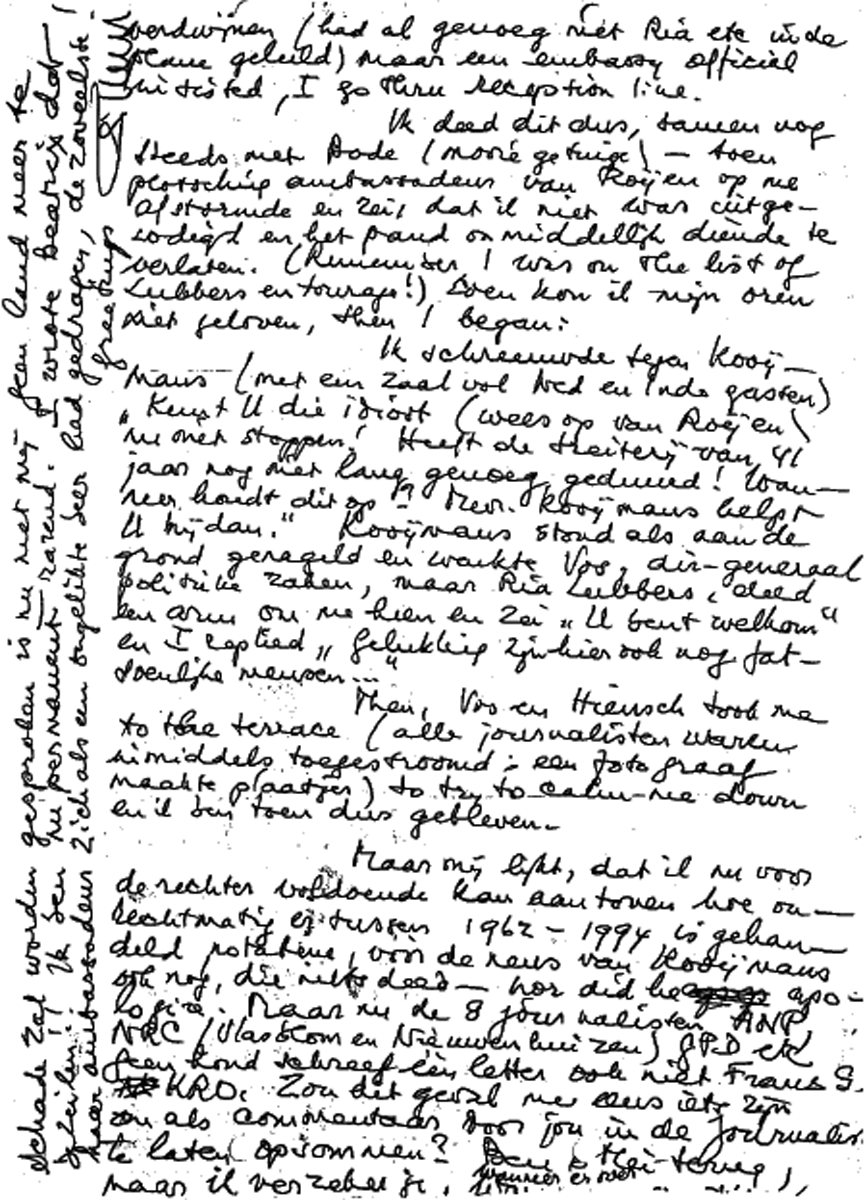 verdwijnen (had al genoeg met Ria etc in de
plane geleld) maar een embassy official
insisted, I go thru reception line.
Ik deed dit dus, samen nog
steeds met Dode (mooie getuige) – toen
plotseling ambassadeur van Roijen op me
afstormde en zei, dat ik niet was uitge-
nodigd en het pand onmiddellijk diende te
verlaten. (Remember I was on the list of
Lubbers entourage!) Even kon ik mijn oren
niet geloven, then I began:
Ik schreeuwde tegen Kooij-
mans (met een zaal vol Ned en Indo gasten)
„Kunt U die idioot (wees op van Roijen)
nu niet stoppen! Heeft de treiterij van 41
jaar nog niet lang genoeg geduurd! Wan-
neer houdt dit op? Mevr. Kooijmans helpt
U mij dan.“ Kooijmans stond als aan de
grond genageld en wenkte Vos, dir-generaal
politieke zaken, maar Ria Lubbers, deed
een arm om me heen en zei „U bent welkom“
en I replied „Gelukkig zijn hier ook nog fat-
soenlijke mensen...“
Then, Vos en Hiensch took me
to the terrace (alle journalisten waren
inmiddels toegestroomd: een fotograaf
maakte plaatjes) to try to calm me down
en ik ben toen dus gebleven.
Maar mij lijkt, dat ik nu voor
de rechter voldoende kan aantonen hoe on-
rechtmatig er tussen 1962 – 1994 is gehan-
deld notabene, vóór de neus van Kooijmans
ook nog, die niets deed – nor did he apo-
logize. Maar nu de 8 journalisten ANP,
NRC (Vlasblom en Nieuwenhuizen) GPD etc
geen hond schreef één letter ook niet Frans G.
KRO. Zou dit geval nu eens iets zijn
om als commentaar door jou in de Journalist
te laten opnemen? Ben terug,
wanneer er over
maar ik verzeker je,
Schade zal worden gesproken is nu met mij geen land meer te
bezeilen!! Ik ben nu permanent razend. I wrote Beatrix dat
haar ambassadeur zich als een ongelikte beer had gedragen, de zoveelste!
greetings